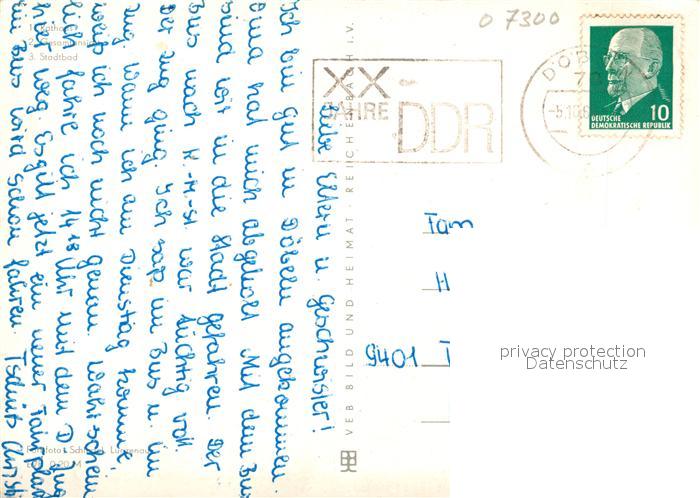 1. Rathaus
3. Stadtbad
Liebe Eltern u. Geschwister!
Ich bin gut in Döbeln angekommen.
Oma hat mich abgeholt. Mit dem Bus
sind wir in die Stadt gefahren. Der
Bus nach K.-M.-St. war tüchtig voll.
Der Zug ging. Ich saß im Bus u. im
Zug. Wann ich am Dienstag komme,
weiß ich noch nicht genau. Wahrschein
lich fahre ich 14 18 Uhr mit dem D Zug
hier weg. Es gilt jetzt ein neuer Fahrplan
Ein Bus wird schon fahren. Tschüß
VEB BILD UND HEIMAT · REICHENBACH I. V.
0 7300
XX
JAHRE
DDR
DÖB
-5.10.6
10
DEUTSCHE
DEMOKRATISCHE REPUBLIK
Fam
H
9401
privacy protection
Datenschutz